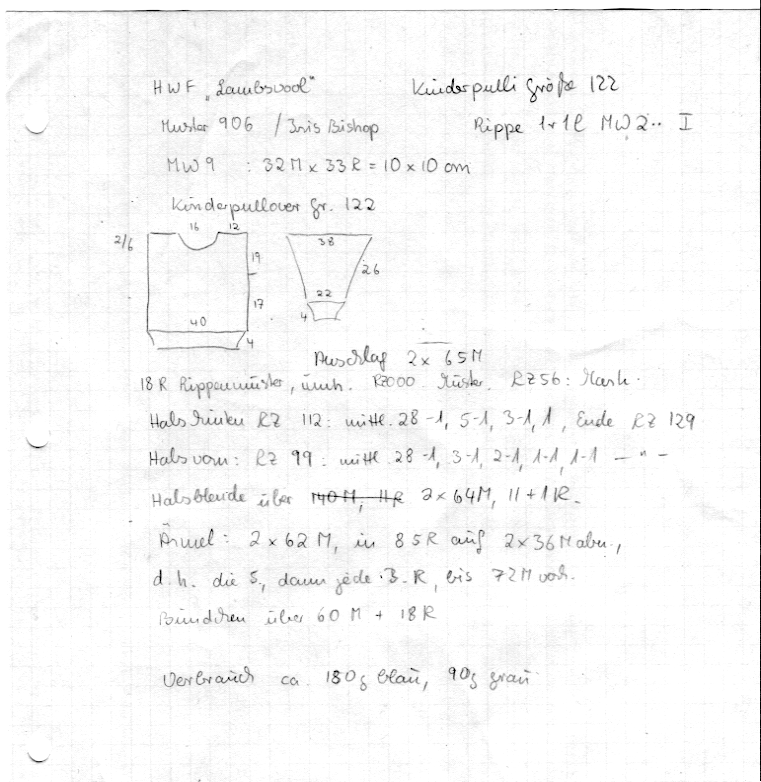 HWF „Lambswool" Kinderpulli Größe 122
Muster 906 / Iris Bishop Rippe 1+1 MW 2·· I
MW 9 : 32 M x 33 R = 10 x 10 cm
Kinderpullover Gr. 122
16 12
2/6
19
17
40
4
38
26
22
4
Anschlag 2 x 65 M
18 R Rippenmuster, umh. RZ000 Muster. RZ 56: Mark.
Hals hinten RZ 112: mittl. 28-1, 5-1, 3-1, 1, Ende RZ 129
Hals vorn: RZ 99: mittl. 28-1, 3-1, 2-1, 1-1, 1-1 — " —
Halsblende über 140 M, 11 R 2 x 64 M, 11 + 1 R.
Ärmel: 2 x 62 M, in 85 R auf 2 x 36 M abn.,
d.h. die 5., dann jede 3. R, bis 72 M vorh.
Bündchen über 60 M + 18 R
Verbrauch ca. 180 g blau, 90 g grau